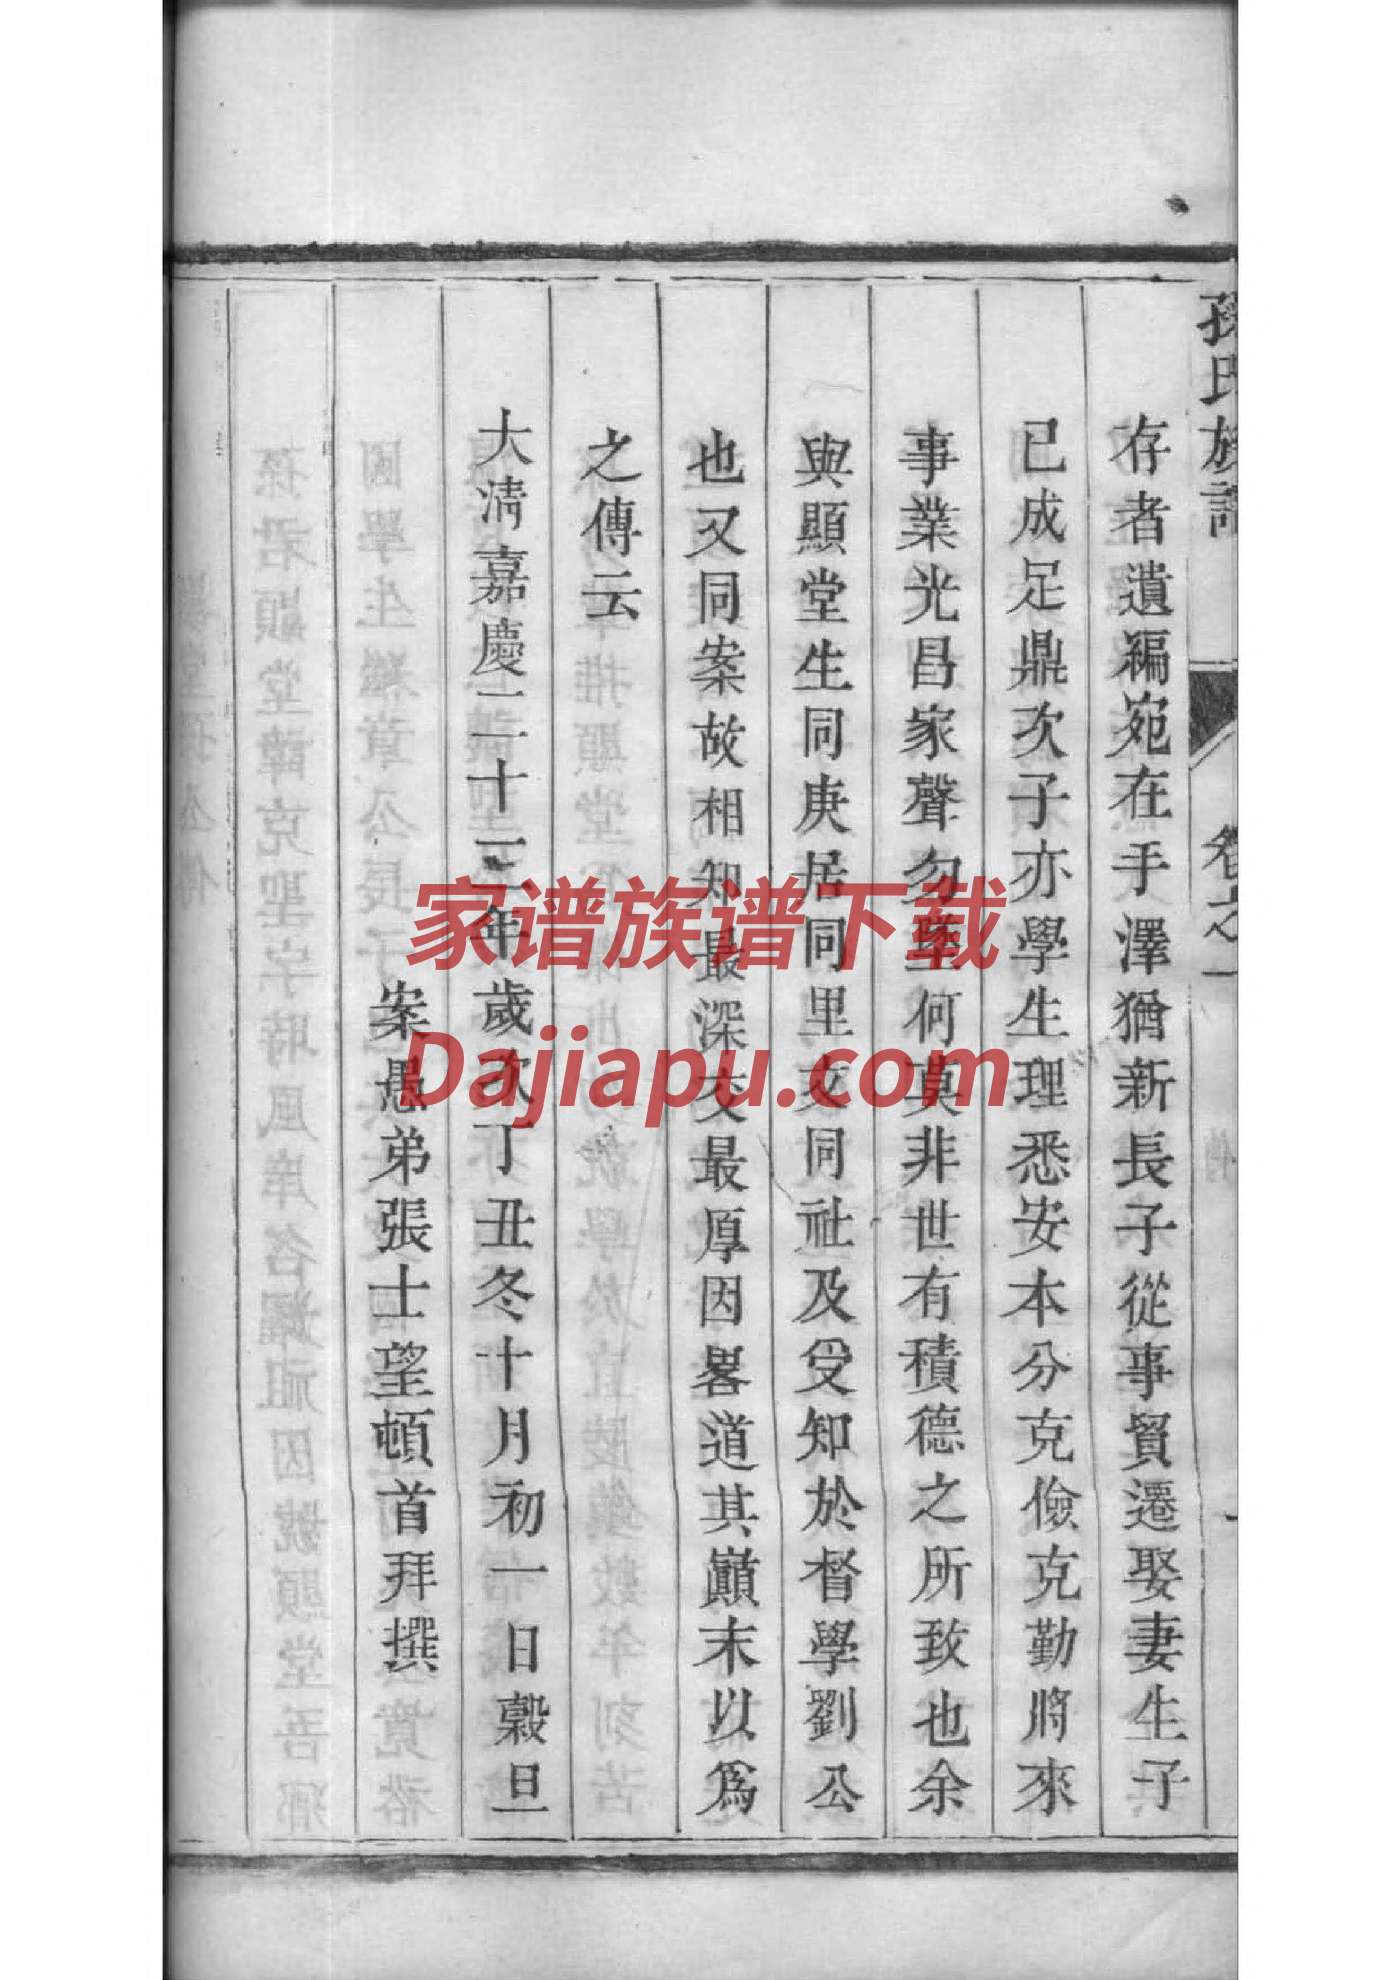 孫氏族譜 卷之一
存者遺編宛在手澤猶新長子從事貿遷娶妻生子
已成足鼎次子亦學生理悉安本分克儉克勤將來
事業光昌家聲勿墜何莫非世有積德之所致也余
與顯堂生同庚居同里交同社及受知於督學劉公
也又同案故相知最深交最厚因畧道其巔末以為
之傳云
大清嘉慶二十二年歲次丁丑冬十月初一日穀旦
案愚弟張士望頓首拜撰
家谱族谱下载
Dajiapu.com